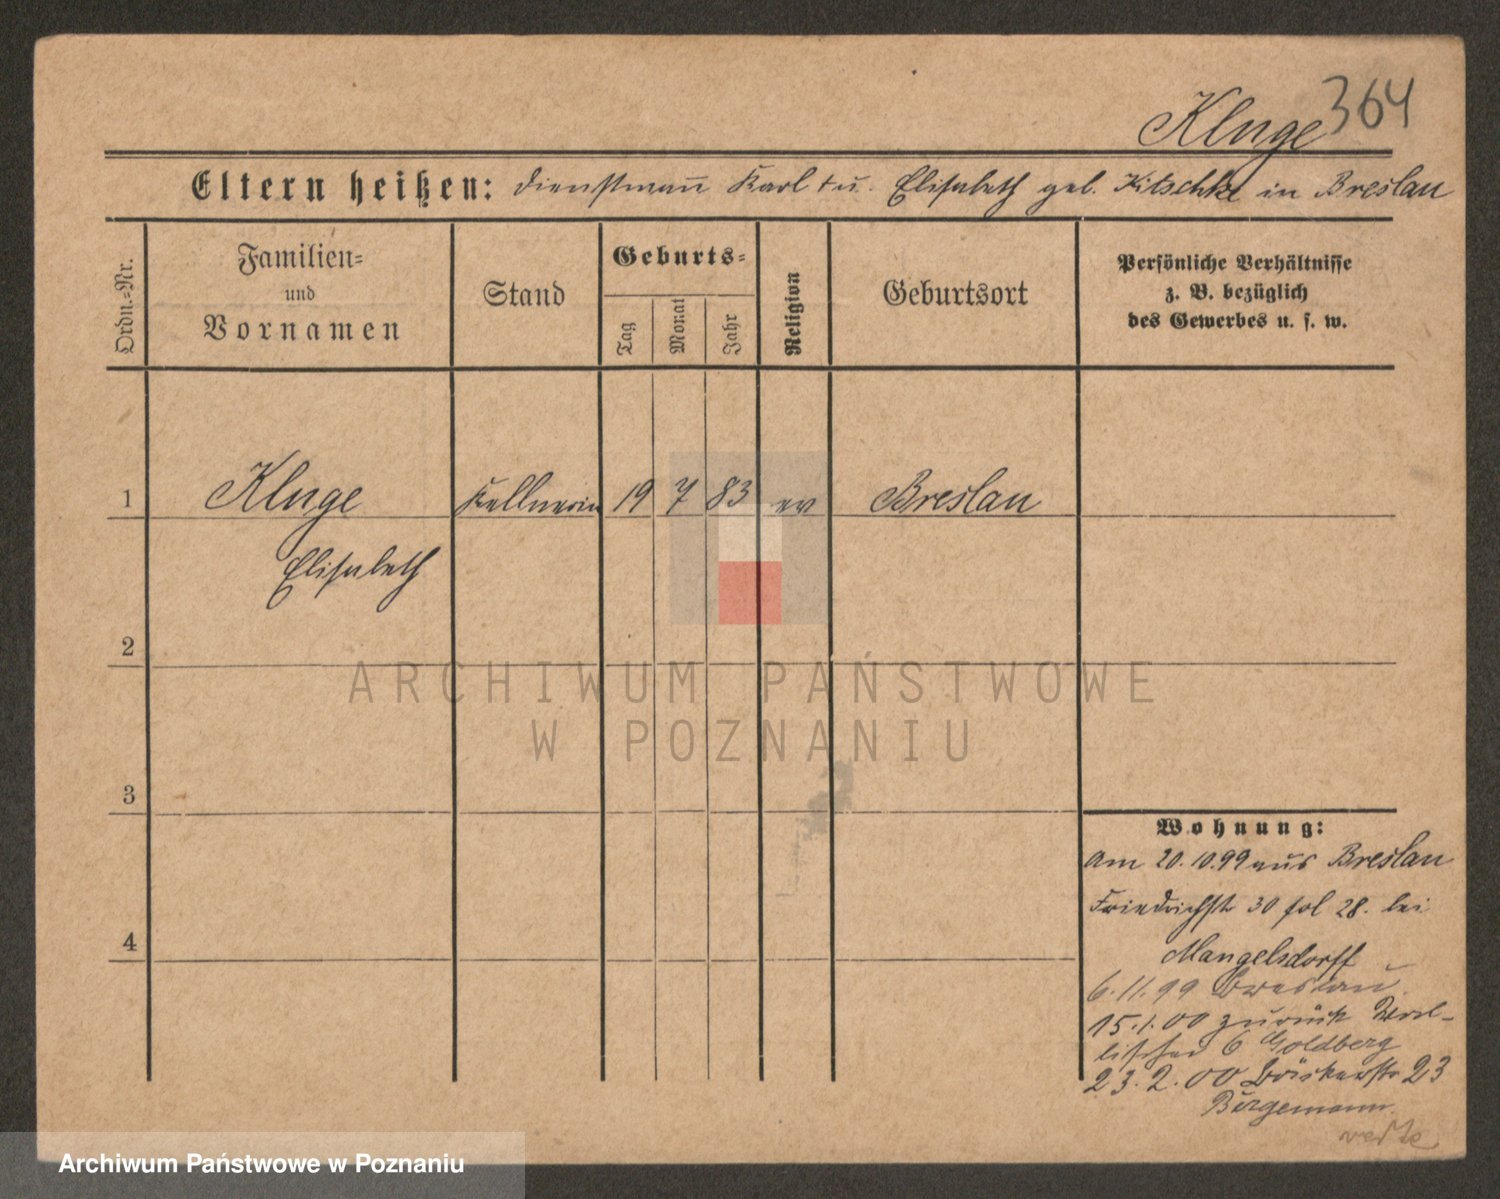 364
Kluge
Eltern heißen: Dienstmann Karl + u. Elisabeth geb. Kitschke in Breslau
Ordn.=Nr.
Familien=
und
Vornamen
Stand
Geburts=
Tag
Monat
Jahr
Religion
Geburtsort
Persönliche Verhältnisse
z. B. bezüglich
des Gewerbes u. s. w.
1 Kluge Kellnerin 19 7 83 ev Breslau
Elisabeth
2
3
4
ARCHIWUM PAŃSTWOWE
W POZNANIU
Wohnung:
Am 20.10.99 aus Breslau
Friedrichstr 30 fol 28. bei
Mangelsdorff
6.11.99 Breslau.
15.1.00 zurück
6 Goldberg
23.2.00 23
Bürgemann
verte
Archiwum Państwowe w Poznaniu